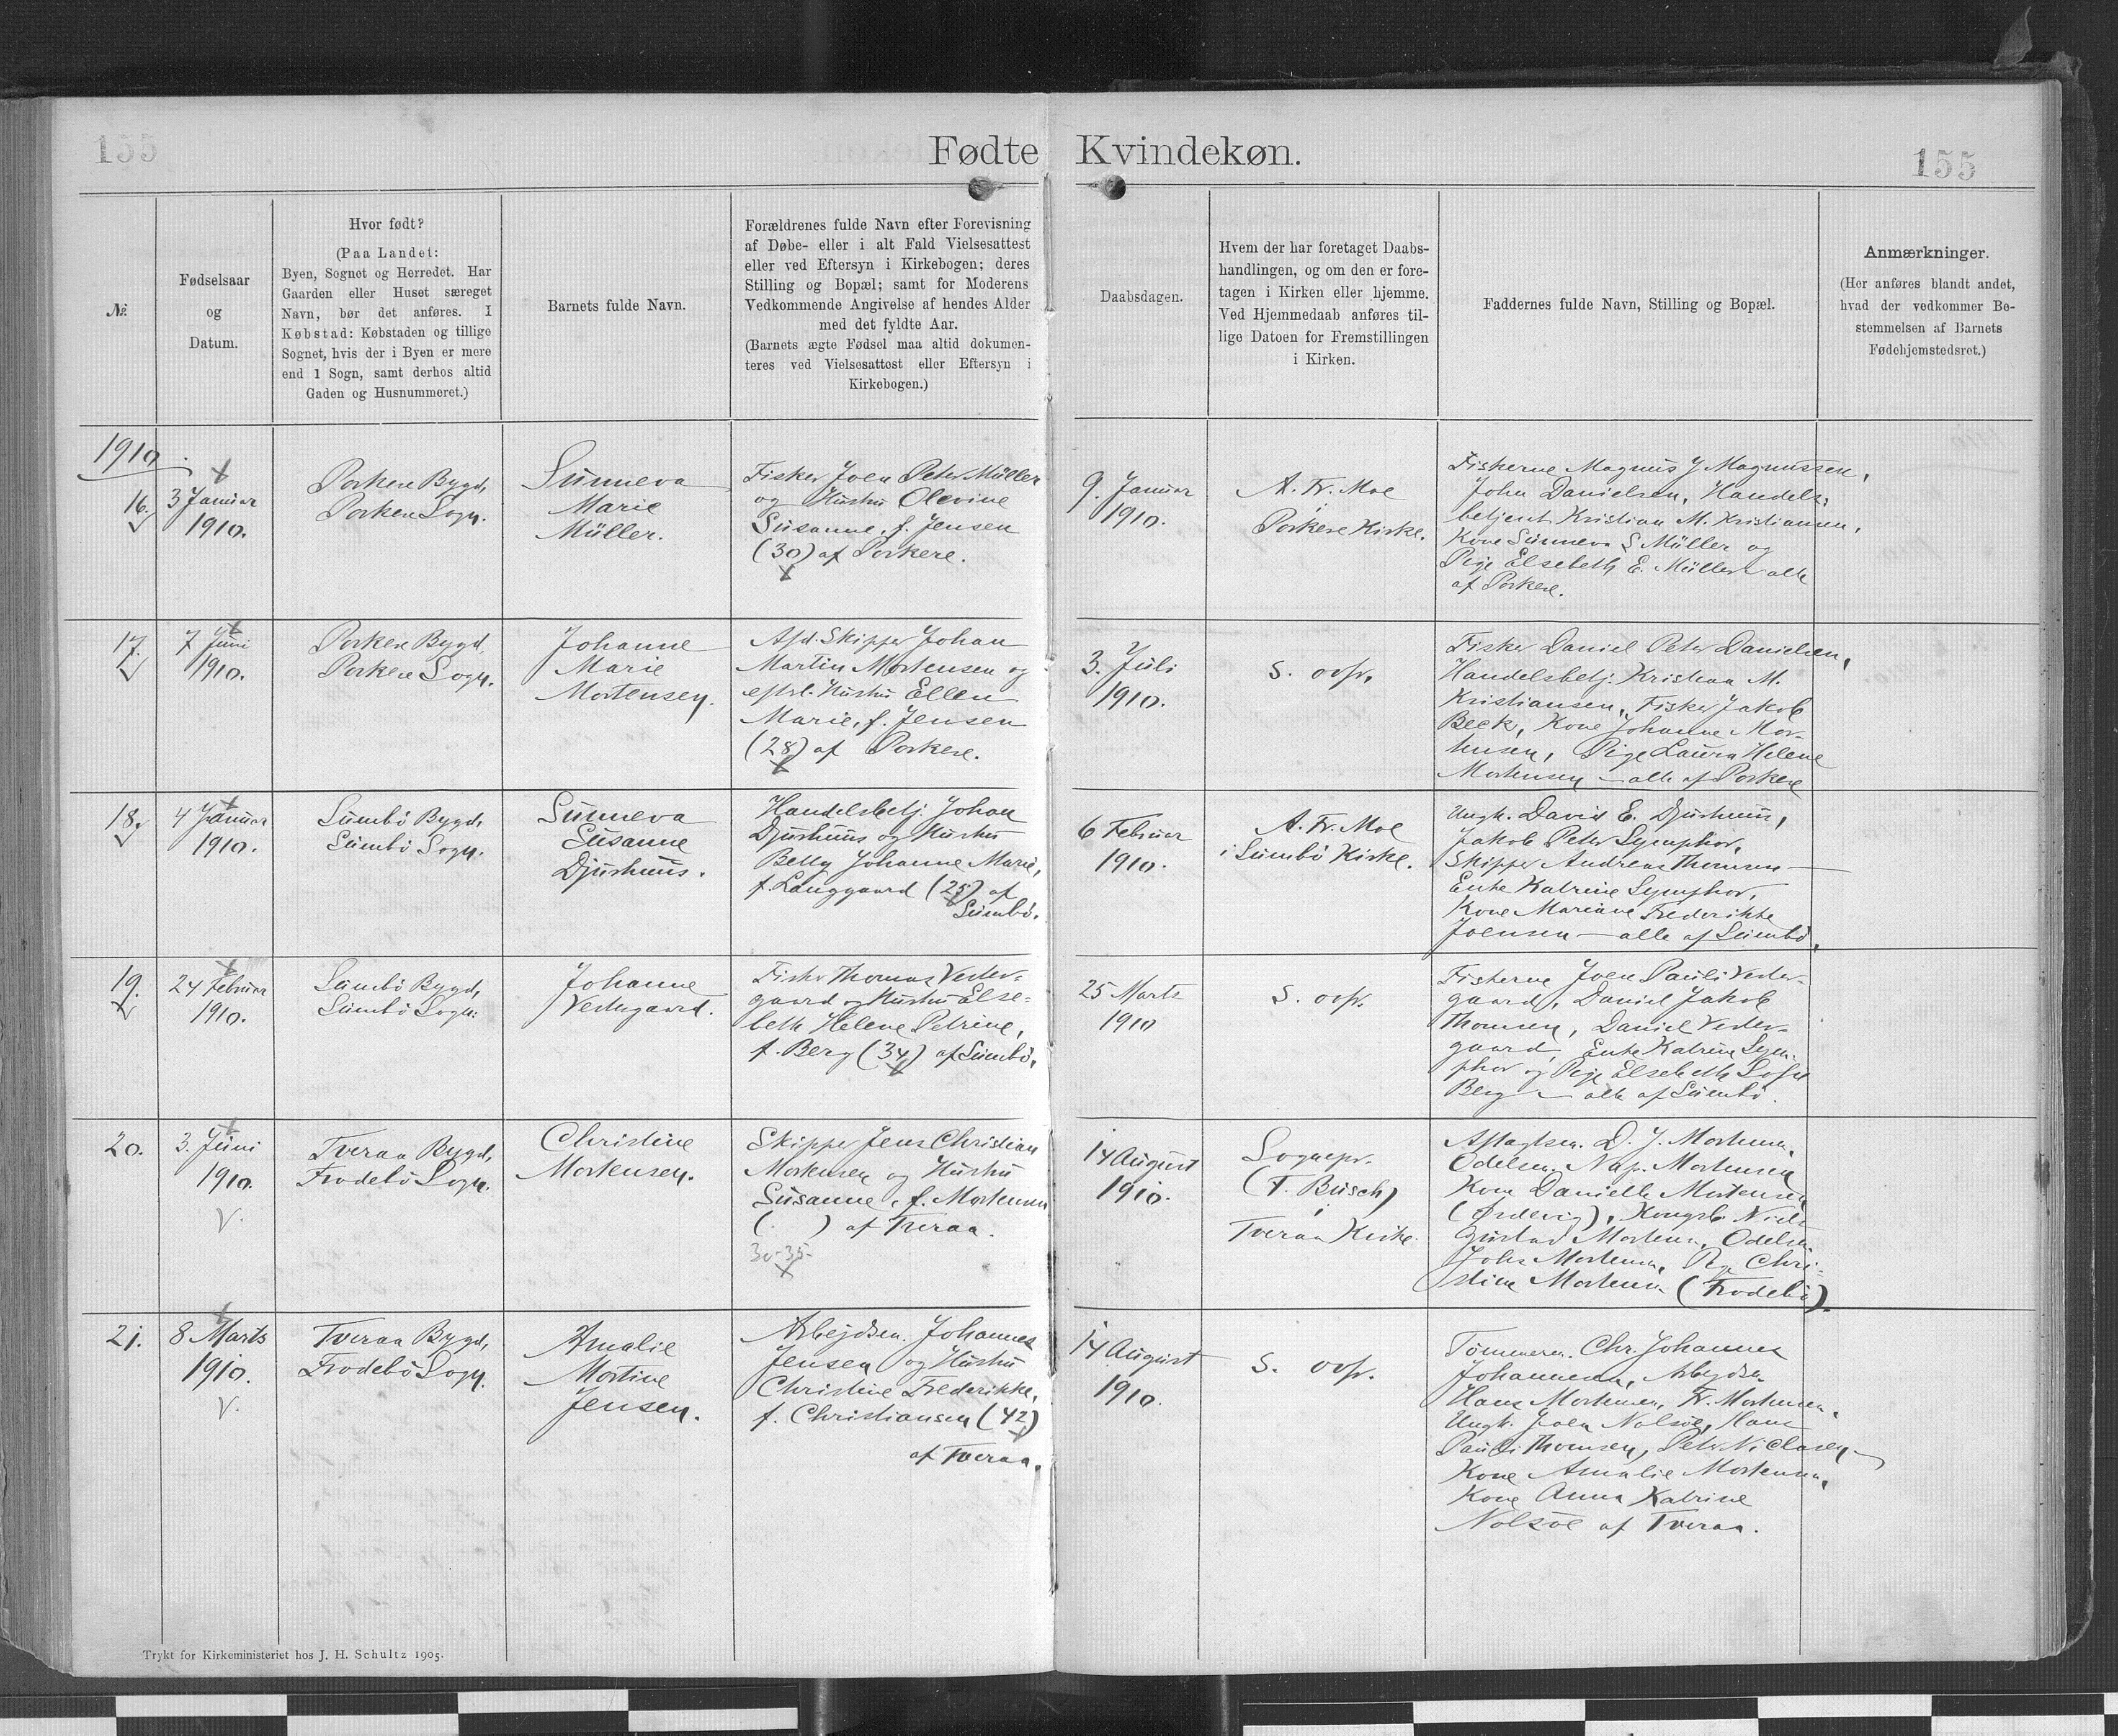 155
Fødte Kvindekøn.
155
№.
Fødselsaar
og
Datum.
Hvor født?
(Paa Landet:
Byen, Sognet og Herredet. Har
Gaarden eller Huset særeget
Navn, bør det anføres. I
Købstad: Købstaden og tillige
Sognet, hvis der i Byen er mere
end 1 Sogn, samt derhos altid
Gaden og Husnummeret.)
Barnets fulde Navn.
Forældrenes fulde Navn efter Forevisning
af Døbe- eller i alt Fald Vielsesattest
eller ved Eftersyn i Kirkebogen; deres
Stilling og Bopæl; samt for Moderens
Vedkommende Angivelse af hendes Alder
med det fyldte Aar.
(Barnets ægte Fødsel maa altid dokumen-
teres ved Vielsesattest eller Eftersyn i
Kirkebogen.)
Daabsdagen.
Hvem der har foretaget Daabs-
handlingen, og om den er fore-
tagen i Kirken eller hjemme.
Ved Hjemmedaab anføres til-
lige Datoen for Fremstillingen
i Kirken.
Faddernes fulde Navn, Stilling og Bopæl.
Anmærkninger.
(Her anføres blandt andet,
hvad der vedkommer Be-
stemmelsen af Barnets
Fødehjemstedsret.)
1910.
16.
3 Januar
1910.
Porkere Bygd,
Porkere Sogn.
Sunneva
Marie
Müller.
Fisker Joen Peter Müller
og Hustru Olevine
Susanne, f. Jensen
(30) af Porkere.
9. Januar
1910.
A. Fr. Moe
i
Porkere Kirke.
Fiskerne Magnus J Magnussen,
John Danielsen, Handels-
betjent Kristian M. Kristiansen,
Kone Sunneva S Müller og
Pige Elsebeth E. Müller alle
af Porkere.
17.
7 Juni
1910.
Porkere Bygd,
Porkere Sogn.
Johanne
Marie
Mortensen.
Afd. Skipper Johan
Martin Mortensen og
efterl. Hustru Ellen
Marie, f. Jensen
(28) af Porkere.
3. Juli
1910.
s. ovfr.
Fisker Daniel Peter Danielsen,
Handelsbetj. Kristian M.
Kristiansen, Fisker Jakob
Beck, Kone Johanne Mor-
tensen, Pige Laura Helene
Mortensen — alle af Porkere
18.
4 Januar
1910.
Sumbø Bygd,
Sumbø Sogn.
Sunneva
Susanne
Djurhuus.
Handelsbetj. Johan
Djurhuus og Hustru
Betty Johanne Marie,
f. Langgaard (25) af
Sumbø.
6 Februar
1910.
A. Fr. Moe
i Sumbø Kirke.
Ungk. David E. Djurhuus,
Jakob Peter Symphor,
Skipper Andreas Thomsen —
Enke Katrine Symphor,
Kone Mariane Frederikke
Joensen — alle af Sumbø.
19.
24 Februar
1910.
Sumbø Bygd,
Sumbø Sogn.
Johanne
Vestergaard.
Fisker Thomas Vester-
gaard og Hustru Else-
beth Helene Petrine,
f. Berg (34) af Sumbø.
25 Marts
1910
s. ovfr.
Fiskerne Joen Pauli Vester-
gaard, Daniel Jakob
Thomsen, Daniel Vester-
gaard, Enke Katrine Sym-
phor og Pige Elsebeth Sofie
Berg — alle af Sumbø.
20.
3. Juni
1910.
V.
Tveraa Bygd,
Frodebø Sogn.
Christine
Mortensen.
Skipper Jens Christian
Mortensen og Hustru
Susanne, f. Mortensen
( ) af Tveraa.
30-35
14 August
1910.
Sognepr.
(F. Busch)
i
Tveraa Kirke.
D. J. Mortensen,
Odelsm. Nap. Mortensen
Kone Danielle Mortensen
(Ørdevig), Kongsb. Niels
Gustav Mortensen, Odelsm.
Johs Mortensen, Pige Chri-
stine Mortensen (Frodebø).
21.
8 Marts
1910.
V.
Tveraa Bygd,
Frodebø Sogn.
Amalie
Mortine
Jensen.
Arbejdsm. Johannes
Jensen og Hustru
Christine Frederikke,
f. Christiansen (42)
af Tveraa.
14 August
1910.
s. ovfr.
Tømmerm. Chr. Johannes
Johannesen, Arbejdsm.
Hans Mortensen, Fr. Mortensen,
Ungk. Joen Nolsøe, Hans
Pauli Thomsen, Peter Niclasen —
Kone Amalie Mortensen,
Kone Anna Katrine
Nolsøe af Tveraa.
Trykt for Kirkeministeriet hos J. H. Schultz 1905.